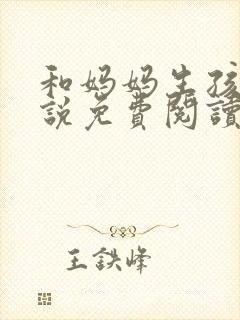 和妈妈生孩
説免費閱讀
王鉄峰